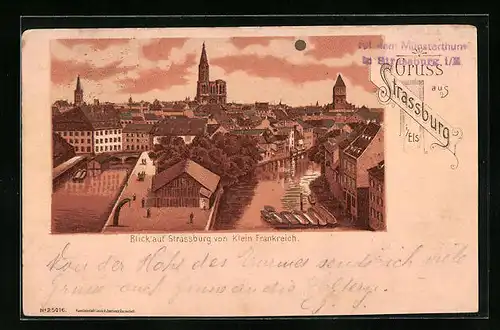 Auf dem Münsterthurm
in Strassburg i/E
Gruss
aus
Strassburg
i/Els
Blick auf Strassburg von Klein Frankreich.
Von der Höhe des Turmes sendet euch viele
Grüsse auch Grüsse an die Eltern.
No 25016.